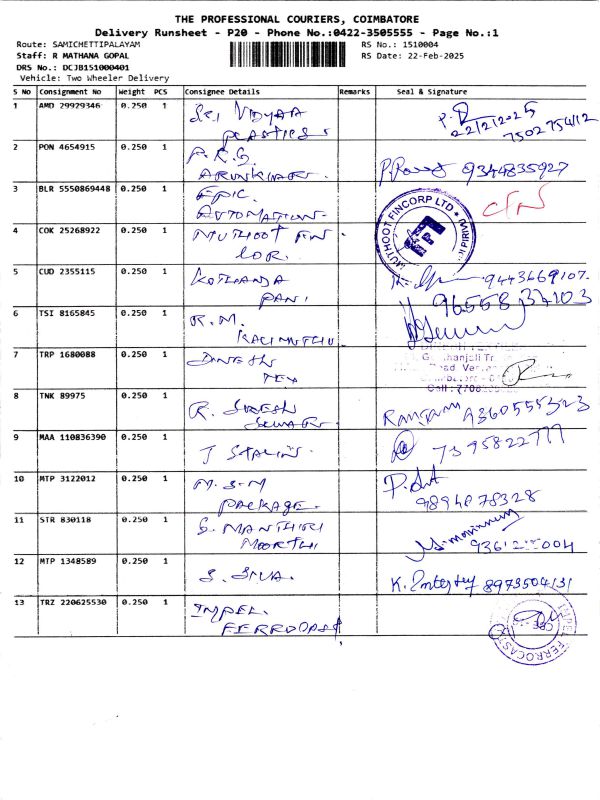 THE PROFESSIONAL COURIERS, COIMBATORE
Delivery Runsheet - P20 - Phone No.:0422-3505555 - Page No.:1
Route: SAMICHETTIPALAYAM RS No.: 1510004
Staff: R MATHANA GOPAL RS Date: 22-Feb-2025
DRS No.: DCJB151000401
Vehicle: Two Wheeler Delivery
S No Consignment No Weight PCS Consignee Details Remarks Seal & Signature
1 AMD 29929346 0.250 1 Sri VIDYAA
PLASTICS
22/2/2025
7502754112
2 PON 4654915 0.250 1 P.R.G.
ARUNKUMAR. 9344835927
3 BLR 5550869448 0.250 1 EPIC
AUTOMATION
MUTHOOT FINCORP LTD
4 COK 25268922 0.250 1 MUTHOOT FIN
COR.
5 CUD 2355115 0.250 1 KOTHANDA
PANI 9443669107
6 TSI 8165845 0.250 1 R.M.
KALIMUTHU
7 TRP 1680088 0.250 1 DINESH
TEX
8 TNK 89975 0.250 1 R. SURESH
KUMAR. 9360555323
9 MAA 110836390 0.250 1 J STALIN. 7395822777
10 MTP 3122012 0.250 1 M.S.M
PACKAGE. 9894078328
11 STR 830118 0.250 1 G. MANTHIRI
MOORTHI
12 MTP 1348589 0.250 1 S. SIVA. 8973504131
13 TRZ 220625530 0.250 1 IMPEL
FERROCAST